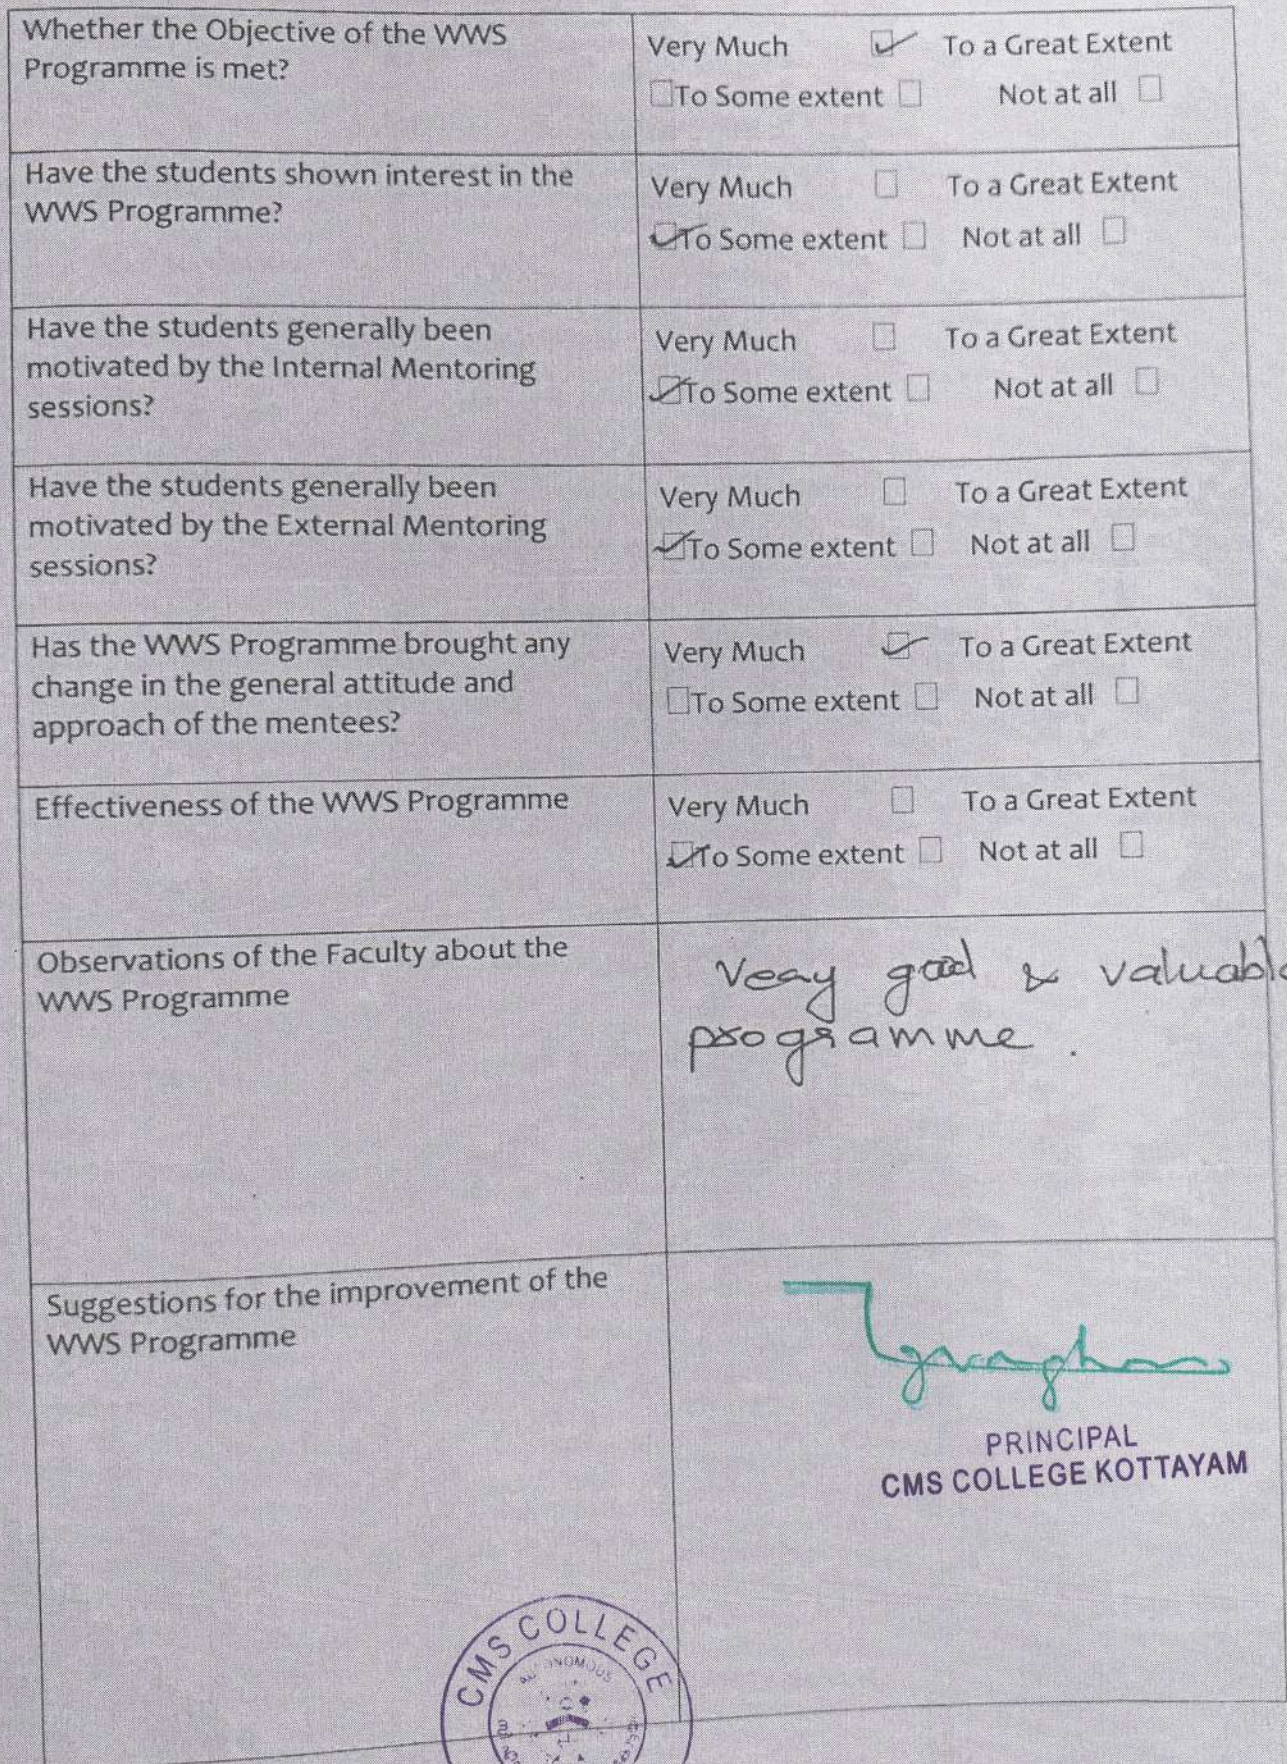 Whether the Objective of the WWS
Programme is met?
Very Much ☑ To a Great Extent
☐To Some extent ☐ Not at all ☐
Have the students shown interest in the
WWS Programme?
Very Much ☐ To a Great Extent
☑To Some extent ☐ Not at all ☐
Have the students generally been
motivated by the Internal Mentoring
sessions?
Very Much ☐ To a Great Extent
☑To Some extent ☐ Not at all ☐
Have the students generally been
motivated by the External Mentoring
sessions?
Very Much ☐ To a Great Extent
☑To Some extent ☐ Not at all ☐
Has the WWS Programme brought any
change in the general attitude and
approach of the mentees?
Very Much ☑ To a Great Extent
☐To Some extent ☐ Not at all ☐
Effectiveness of the WWS Programme
Very Much ☐ To a Great Extent
☑To Some extent ☐ Not at all ☐
Observations of the Faculty about the
WWS Programme
Very good & valuable
programme.
Suggestions for the improvement of the
WWS Programme
PRINCIPAL
CMS COLLEGE KOTTAYAM
CMS COLLEGE
AUTONOMOUS